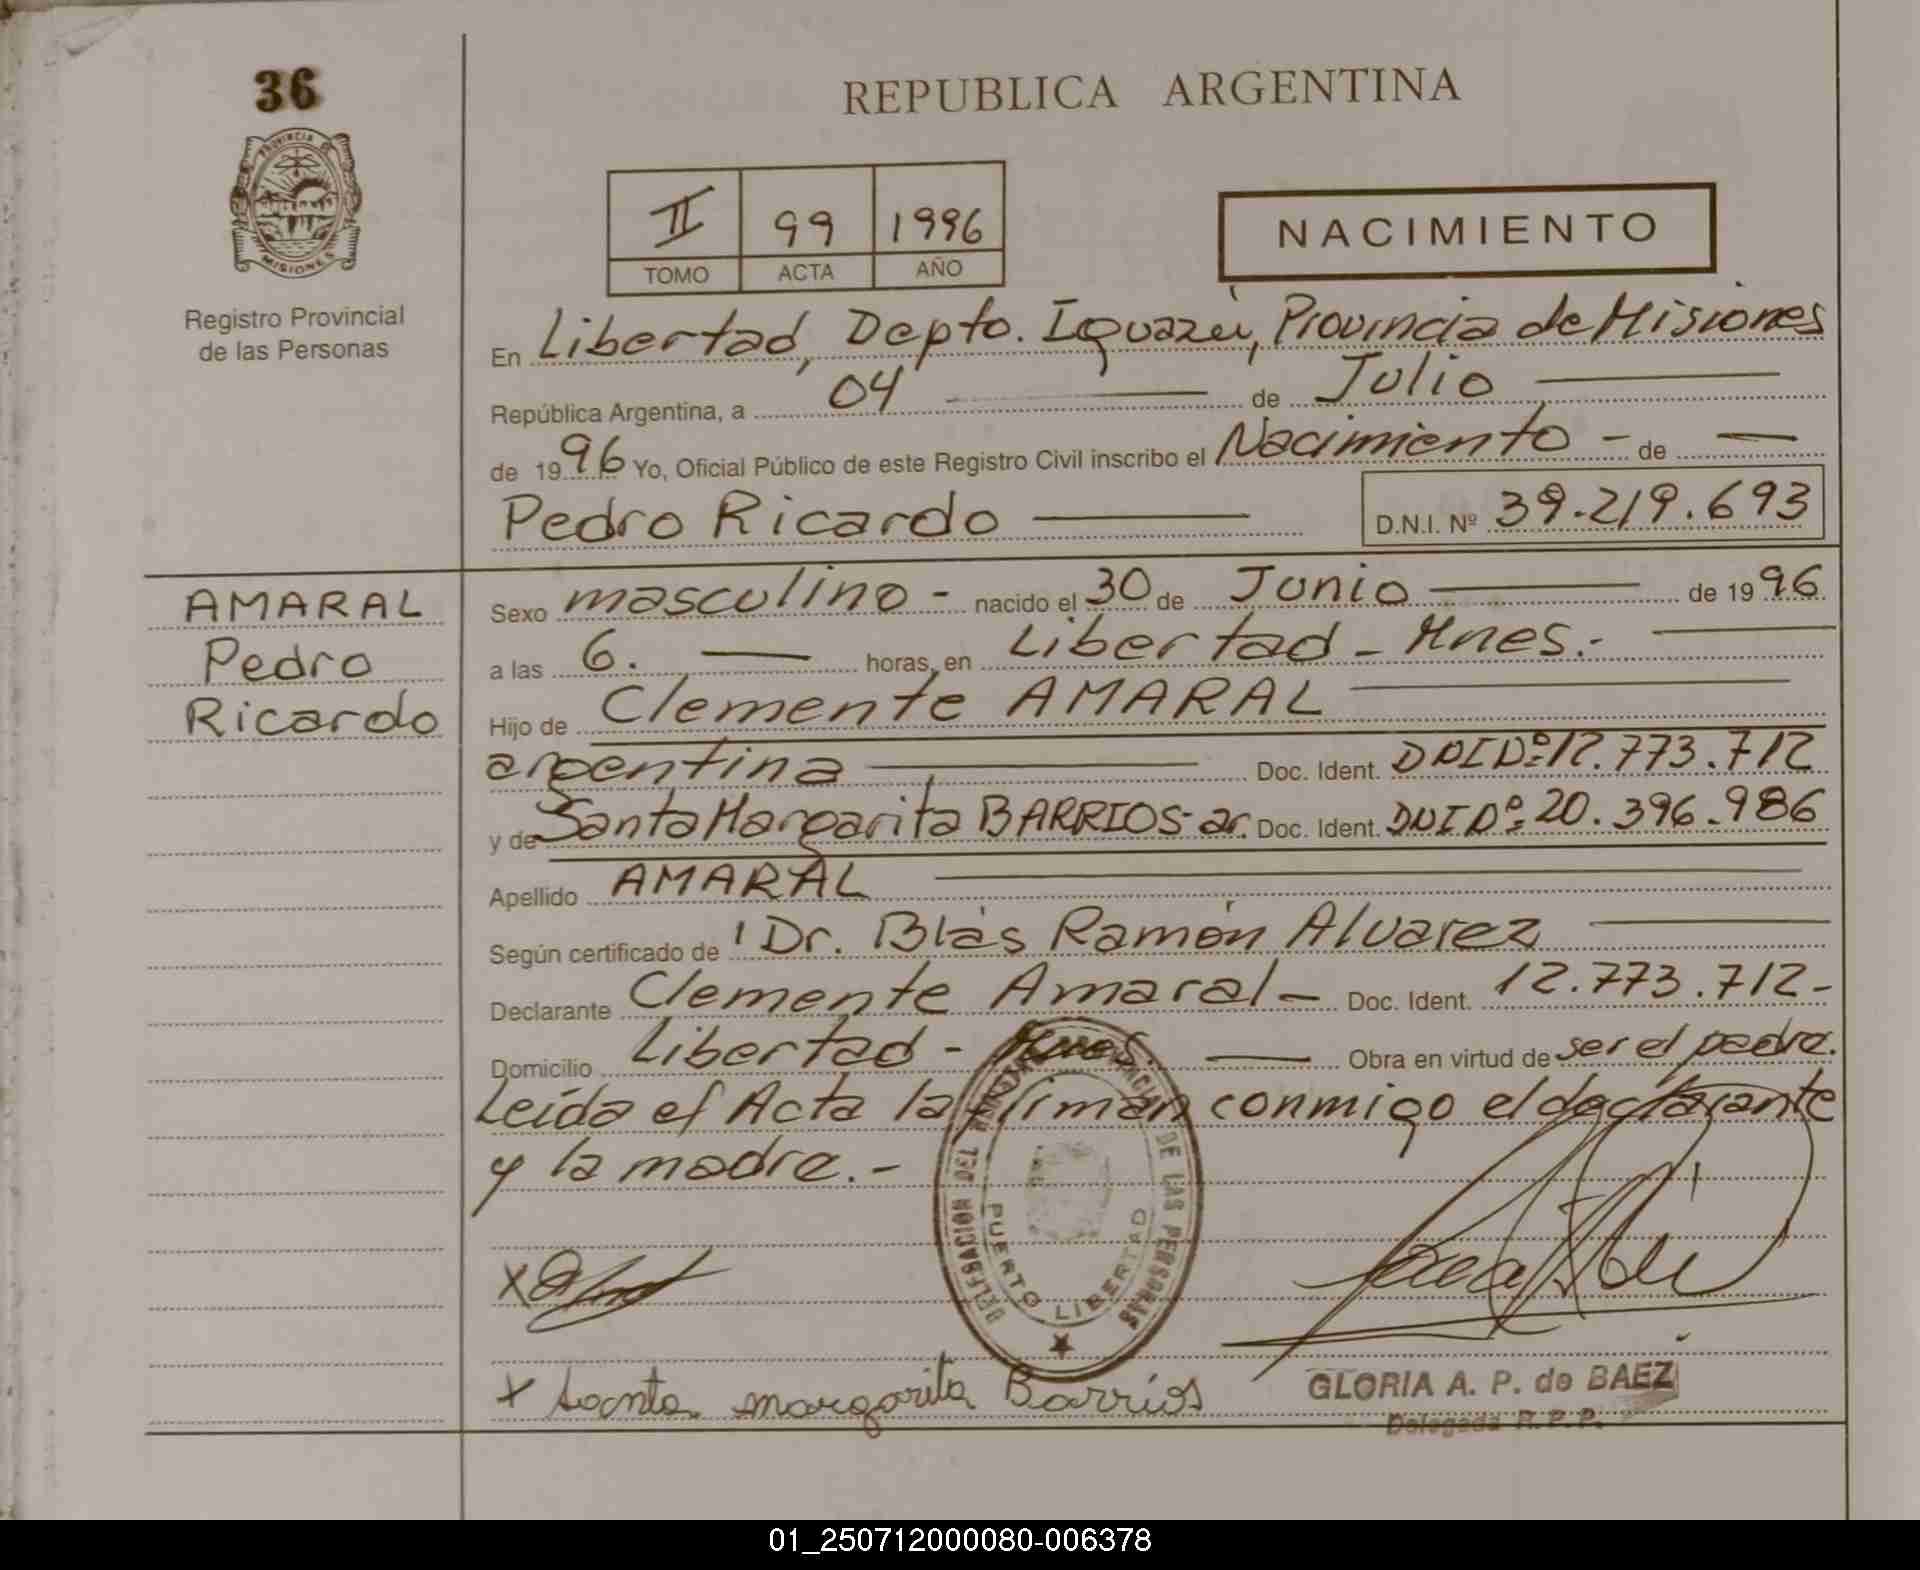 36
REPUBLICA ARGENTINA
PROVINCIA DE
MISIONES
Registro Provincial
de las Personas
II 99 1996
TOMO ACTA AÑO
NACIMIENTO
En Libertad, Depto. Iguazú, Provincia de Misiones
República Argentina, a 04 de Julio
de 1996 Yo, Oficial Público de este Registro Civil inscribo el Nacimiento - de —
Pedro Ricardo D.N.I. Nº 39.219.693
AMARAL
Pedro
Ricardo
Sexo masculino - nacido el 30 de Junio de 1996
a las 6. — horas, en Libertad - Mnes.-
Hijo de Clemente AMARAL
argentina Doc. Ident. DNI Nº: 12.773.712
y de Santa Margarita BARRIOS - ar. Doc. Ident. DNI Nº: 20.396.986
Apellido AMARAL
Según certificado de Dr. Blás Ramón Alvarez
Declarante Clemente Amaral - Doc. Ident. 12.773.712-
Domicilio Libertad - Mnes. — Obra en virtud de ser el padre.
Leída el Acta la firman conmigo el declarante
y la madre.-
DELEGACION DEL REGISTRO PROVINCIAL DE LAS PERSONAS
PUERTO LIBERTAD
X
X Santa margarita Barrios
GLORIA A. P. de BAEZ
Delegada R. P. P.
01_250712000080-006378